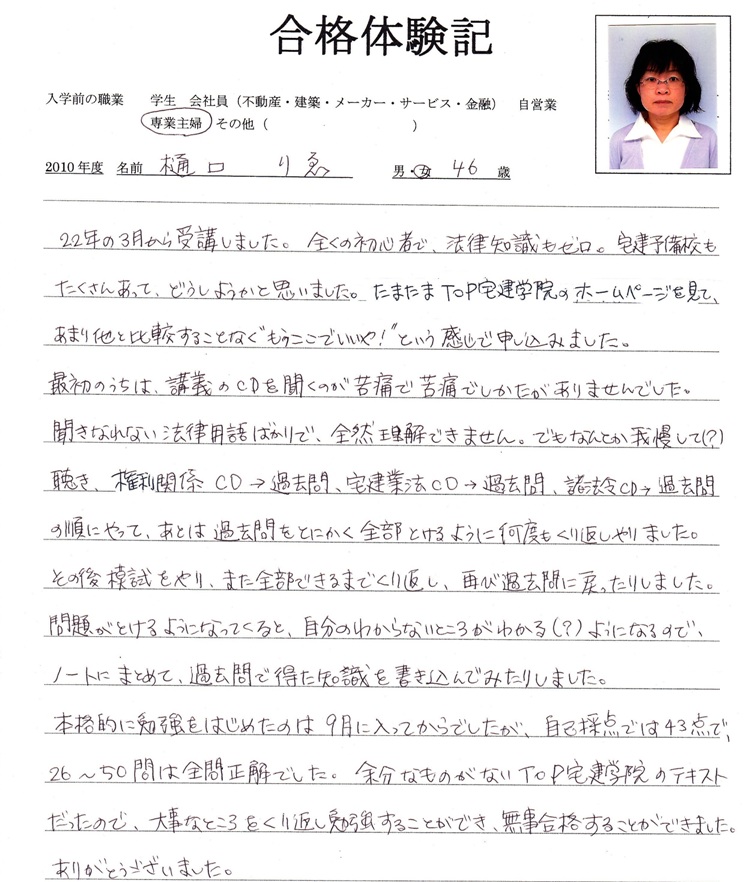 合格体験記
入学前の職業 学生 会社員(不動産・建築・メーカー・サービス・金融) 自営業
専業主婦 その他( )
2010年度 名前 樋口 りゑ 男・女 46 歳
22年の3月から受講しました。全くの初心者で、法律知識もゼロ。宅建予備校も
たくさんあって、どうしようかと思いました。たまたまTOP宅建学院のホームページを見て、
あまり他と比較することなく"もうここでいいや!"という感じで申し込みました。
最初のうちは、講義のCDを聞くのが苦痛で苦痛でしかたがありませんでした。
聞きなれない法律用語ばかりで、全然理解できません。でもなんとか我慢して(?)
聴き、権利関係CD→過去問、宅建業法CD→過去問、諸法令CD→過去問
の順にやって、あとは過去問をとにかく全部とけるように何度もくり返しやりました。
その後模試をやり、また全部できるまでくり返し、再び過去問に戻ったりしました。
問題がとけるようになってくると、自分のわからないところがわかる(?)ようになるので、
ノートにまとめて、過去問で得た知識を書き込んでみたりしました。
本格的に勉強をはじめたのは9月に入ってからでしたが、自己採点では43点で、
26~50問は全問正解でした。余分なものがないTOP宅建学院のテキスト
だったので、大事なところをくり返し勉強することができ、無事合格することができました。
ありがとうございました。